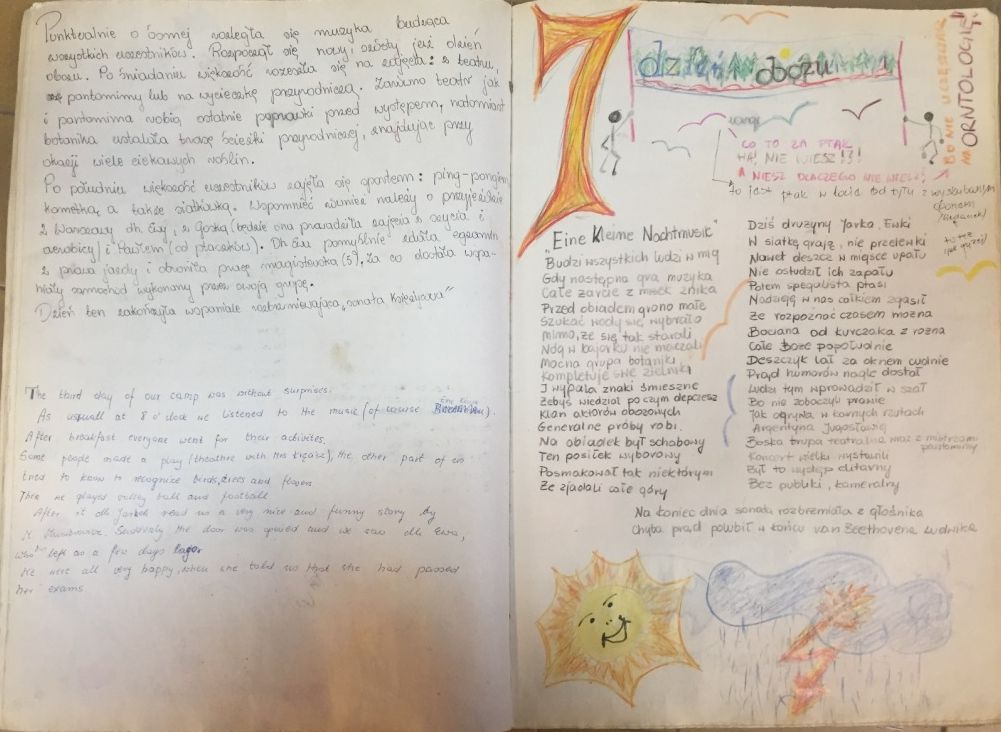 Punktualnie o ósmej rozległa się muzyka budząca
wszystkich uczestników. Rozpoczął się nowy, szósty już dzień
obozu. Po śniadaniu większość rozeszła się na zajęcia: z teatru,
pantomimy lub na wycieczkę przyrodniczą. Zarówno teatr jak
i pantomima robią ostatnie poprawki przed występem, natomiast
botanika ustalała trasę ścieżki przyrodniczej, znajdując przy
okazji wiele ciekawych roślin.
Po południu większość uczestników zajęła się sportem: ping-pongiem,
kometką, a także siatkówką. Wspomnieć również należy o przyjeździe
z Warszawy dh Ewy, z Gośką (będzie ona prowadziła zajęcia z
aerobicy) i Pawłem (od ptaszków). Dh Ewa pomyślnie zdała egzamin
z prawa jazdy i obroniła pracę magisterską (5), za co dostała wspa-
niały samochód wykonany przez swoją grupę.
Dzień ten zakończyła wspaniale rozbrzmiewająca „sonata Księżycowa"
The third day of our camp was without surprises.
As usuall at 8 o'clock we listened to the music (of course Eine Kleine).
After breakfast everyone went for their activites.
Some people made a play (theathre with Mrs), the other part of us
tried to know to recognize birds, trees and flowers
Then we played volley ball and football
After it dh Jarek read us a very nice and funny story by
Suddenly the door was opened and we saw dh Ewa,
who left us a few days
We were all very happy, when she told us that she had passed
her exams
7
dzień obozu
CO TO ZA PTAK
HA! NIE WIESZ!?!
A WIESZ DLACZEGO NIE WIESZ?
BO NIE UCZĘSZCZASZ
NA ORNTOLOGIĘ!
to jest ptak w locie od tyłu z wyskubanym
ogonem
"Eine Kleine Nachtmusic"
Budzi wszystkich ludzi w mig
Gdy następna gra muzyka
Całe żarcie z misek znika
Przed obiadem grono małe
Szukać wody się wybrało
Mimo, że się tak starali
Nóg w bajorku nie maczali
Mocna grupa botaniki
Kompletuje swe zielniki
I wypala znaki śmieszne
Żebyś wiedział po czym depczesz
Klan aktorów obozowych
Generalne próby robi.
Na obiadek był schabowy
Ten posiłek wyborowy
Posmakował tak niektórym
Że zjadali całe góry
Dziś drużyny Jarka, Ewki
W siatkę grają, nie przelewki
Nawet deszcz w miejsce upału
Nie ostudził ich zapału
Potem specjalista ptasi
Nadzieję w nas całkiem zgasił
Że rozpoznać czasem można
Bociana od kurczaka z rożna
Całe Boże popołudnie
Deszczyk lał za oknem cudnie
Prąd humorów nagle dostał
Ludzi tym wprowadził w szał
Bo nie zobaczyli prawie
Jak ogrywa w karnych rzutach
Argentyna Jugosławię
Boska trupa teatralna wraz z mistrzami pantomimy
Koncert wielki wystawili
Był to występ elitarny
Bez publiki, kameralny
Na koniec dnia sonata rozbrzmiała z głośnika
Chyba prąd polubił w końcu van Beethovena Ludwika